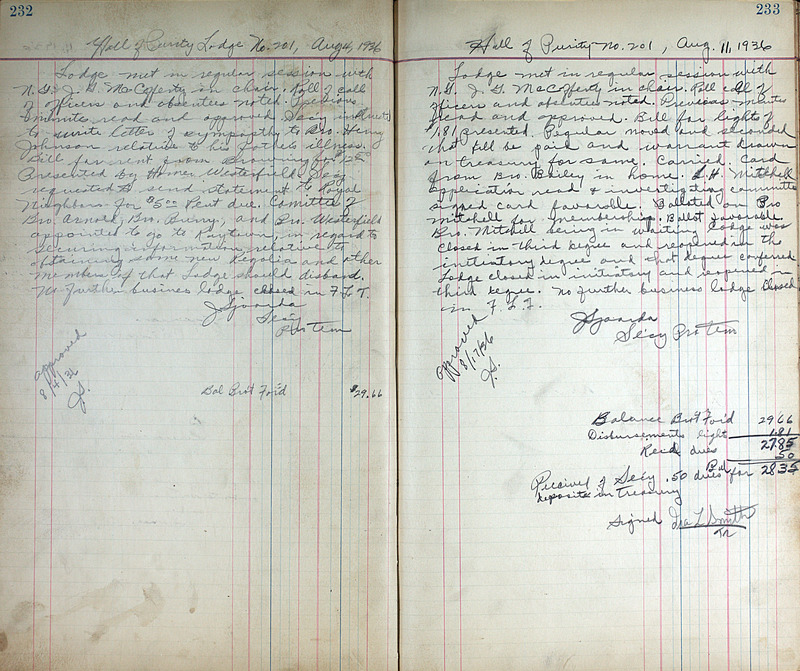 232
Hall of Purity Lodge No. 201, Aug 4, 1936
Lodge met in regular session with
N.G. J. G. McCofferty in chair. Roll of call
of officers and absentees noted. Previous
minutes read and approved. Secy instructed
to write letter of sympathy to Bro. Henry
Johnson relative to his illness.
Bill for rent from Browning for
Presented by Homer Westerfield. Secy
requested to send statement to Royal
Neighbors for $5.00 Rent due. Comittee of
Bro. Arnold, Bro. and Bro. Westerfield
appointed to go to Raytown in regard to
securing information relative to
obtaining some new Regolia and other
members of that Lodge should disband.
No further business lodge closed in F. L. T.
J Sjoarda
Secy
Pro tem
approved
8/4/36
JS.
Bal Bro't For'd $29.66
233
Hall of Purity No. 201, Aug. 11, 1936
Lodge met in regular session with
N.G. J. G. McCofferty in chair. Roll call of
officers and absenties noted. Previous minutes
read and approved. Bill for lights of
$1.81 presented. Regular moved and seconded
that bill be paid and warrant drawn
on treasury for same. Carried. Card
from Bro. Bailey in home. Mitchell
application read & investigating committee
signed card favorable. Balloted on Bro
Mitchell for membership. Ballot favorable
Bro. Mitchell being in waiting lodge was
closed in third degree and reopened in the
initiatory degree and that degree conferred
Lodge closed in initiatory and reopened in
third degree. No further business lodge closed
in F. L. T.
J Sjoarda
Secy Pro Tem
approved
8/17/36
JS.
Balance Bro't For'd 29 66
Disbursements light 1.81
27.85
Recd dues 50
Bal 28 35
Received of Secy .50 dues for
deposite in treasury
Signed Ira L. Smith
Tr